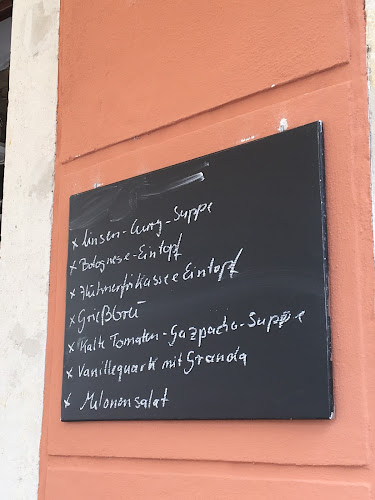 x Linsen-Curry-Suppe
x Bolognese-Eintopf
x Hühnerfrikassee Eintopf
x Grießbrei
x Kalte Tomaten-Gazpacho-Suppe
x Vanillequark mit Granola
x Melonensalat